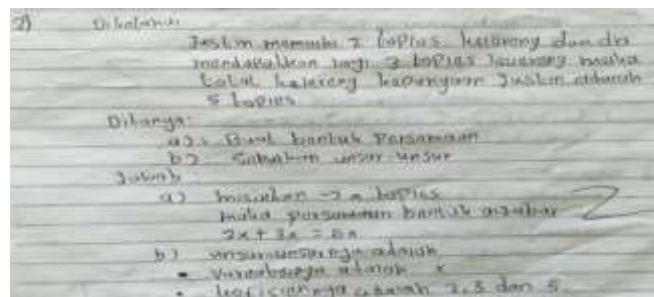 2) Diketahui:
Justin memiliki 2 toples kelereng dan dia
mendapatkan lagi 3 toples kelereng maka
total kelereng kepunyaan Justin adalah
5 toples
Ditanya:
a). Buat bentuk Persamaan
b) Sebutkan unsur unsur
Jawab
a) misalkan → x toples
maka persamaan bentuk aljabar
2x + 3x = 5x
b) unsur-unsurnya adalah
• Variabelnya adalah x
• koefisiennya adalah 2, 3 dan 5